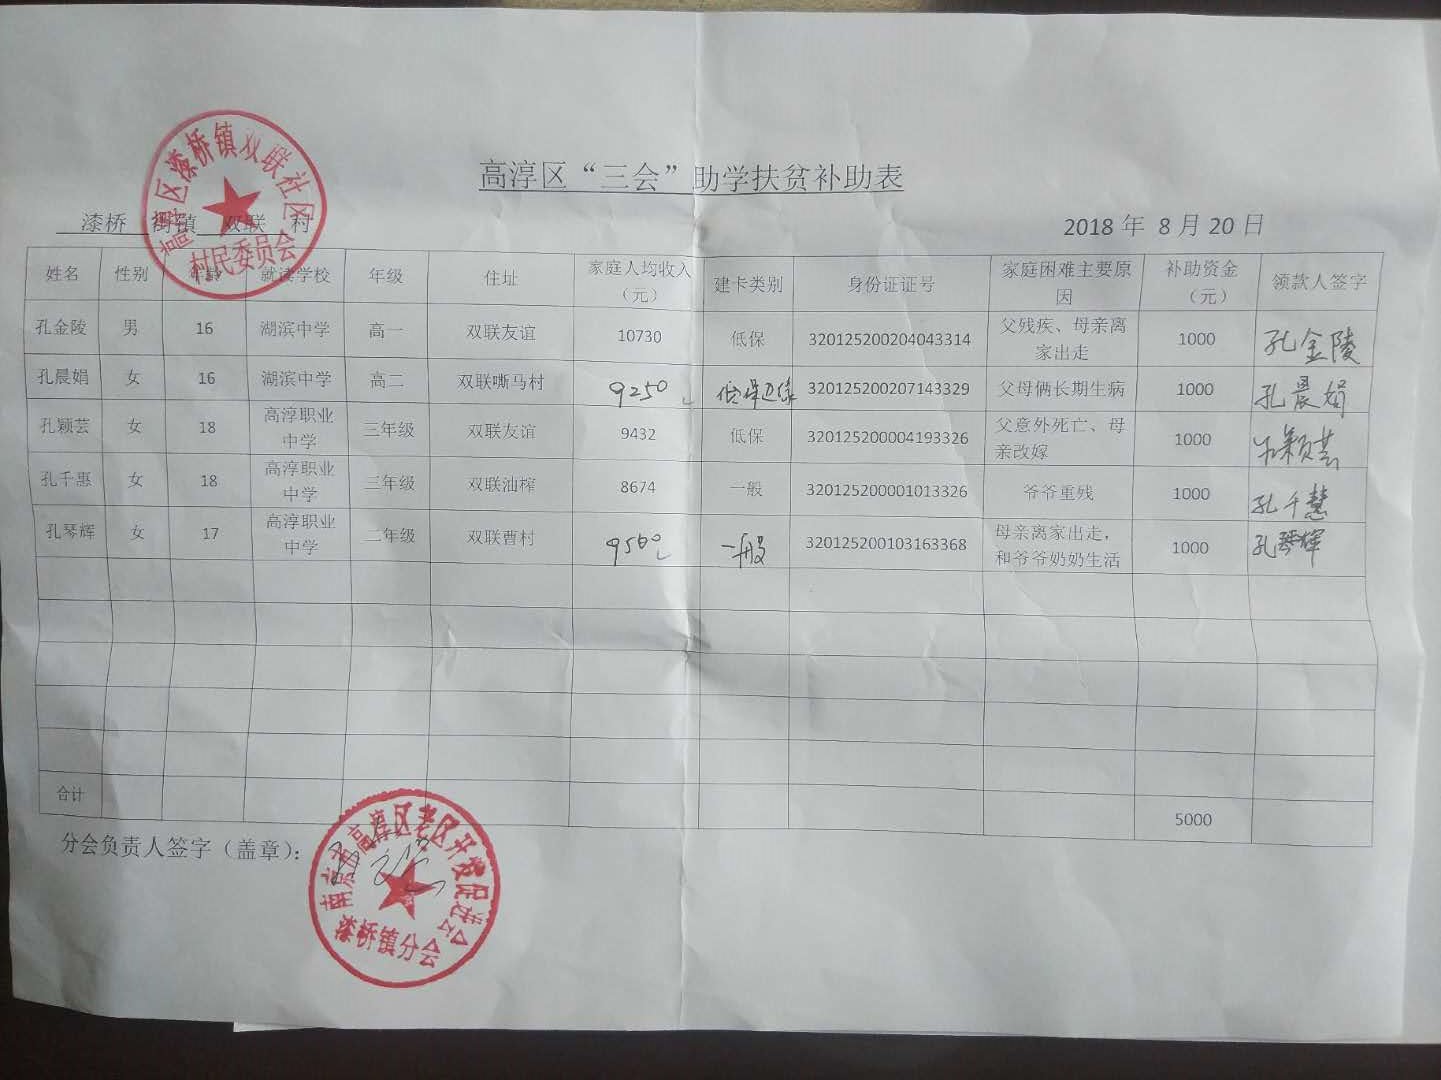 高淳区“三会”助学扶贫补助表
高淳区漆桥镇双联社区
村民委员会
漆桥 街镇 双联 村
2018年 8月20日
姓名 性别 年龄 就读学校 年级 住址 家庭人均收入（元） 建卡类别 身份证证号 家庭困难主要原因 补助资金（元） 领款人签字
孔金陵 男 16 湖滨中学 高一 双联友谊 10730 低保 320125200204043314 父残疾、母亲离家出走 1000 孔金陵
孔晨娟 女 16 湖滨中学 高二 双联嘶马村 9250 低保边缘 320125200207143329 父母俩长期生病 1000 孔晨娟
孔颖芸 女 18 高淳职业中学 三年级 双联友谊 9432 低保 320125200004193326 父意外死亡、母亲改嫁 1000 孔颖芸
孔千惠 女 18 高淳职业中学 三年级 双联油榨 8674 一般 320125200001013326 爷爷重残 1000 孔千慧
孔琴辉 女 17 高淳职业中学 二年级 双联曹村 9560 一般 320125200103163368 母亲离家出走，和爷爷奶奶生活 1000 孔琴辉
合计 5000
分会负责人签字（盖章）：
南京市高淳区老区开发促进会
漆桥镇分会